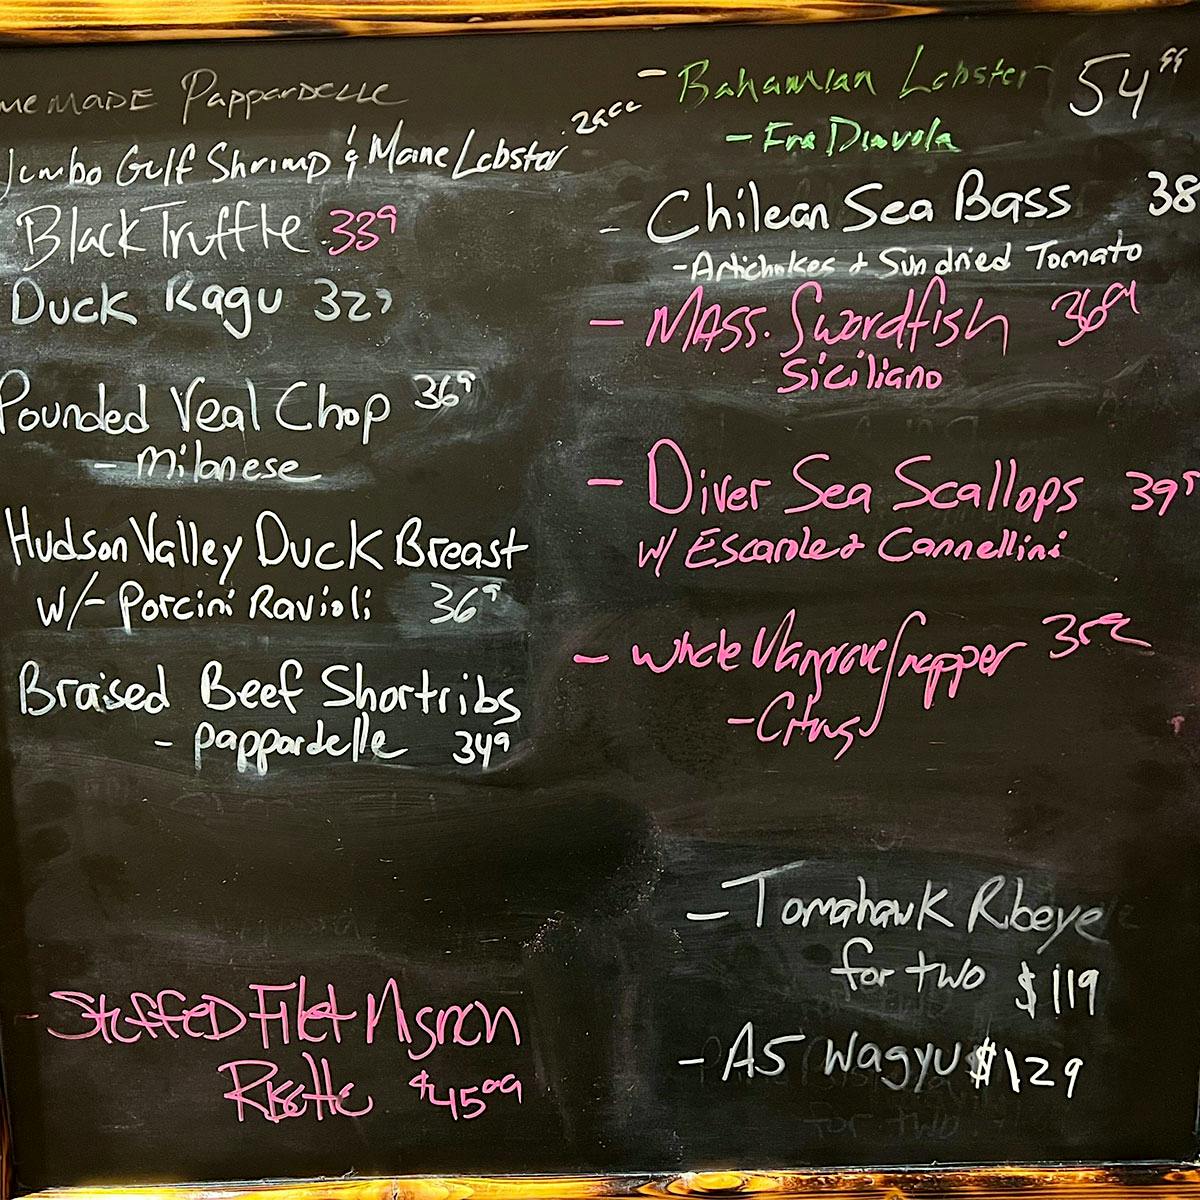 MEMADE PAPPARDELLE
Jumbo Gulf Shrimp & Maine Lobster
Black Truffle 33⁹
Duck Ragu 32⁹
Pounded Veal Chop 36⁹
- Milanese
Hudson Valley Duck Breast
w/- Porcini Ravioli 36⁹
Braised Beef Shortribs
- pappardelle 34⁹
- Stuffed Filet Mignon
$45⁹⁹
- Bahamian Lobster 54⁹⁹
- Fra Diavola
- Chilean Sea Bass 38
- Artichokes & Sundried Tomato
- MASS. Swordfish 36⁹⁹
Siciliano
- Diver Sea Scallops 39⁹
w/ Escarole & Cannellini
- Whole Mangrove Snapper 35⁹⁹
- Citrus
- Tomahawk Ribeye
for two $119
- A5 Wagyu $129
for two